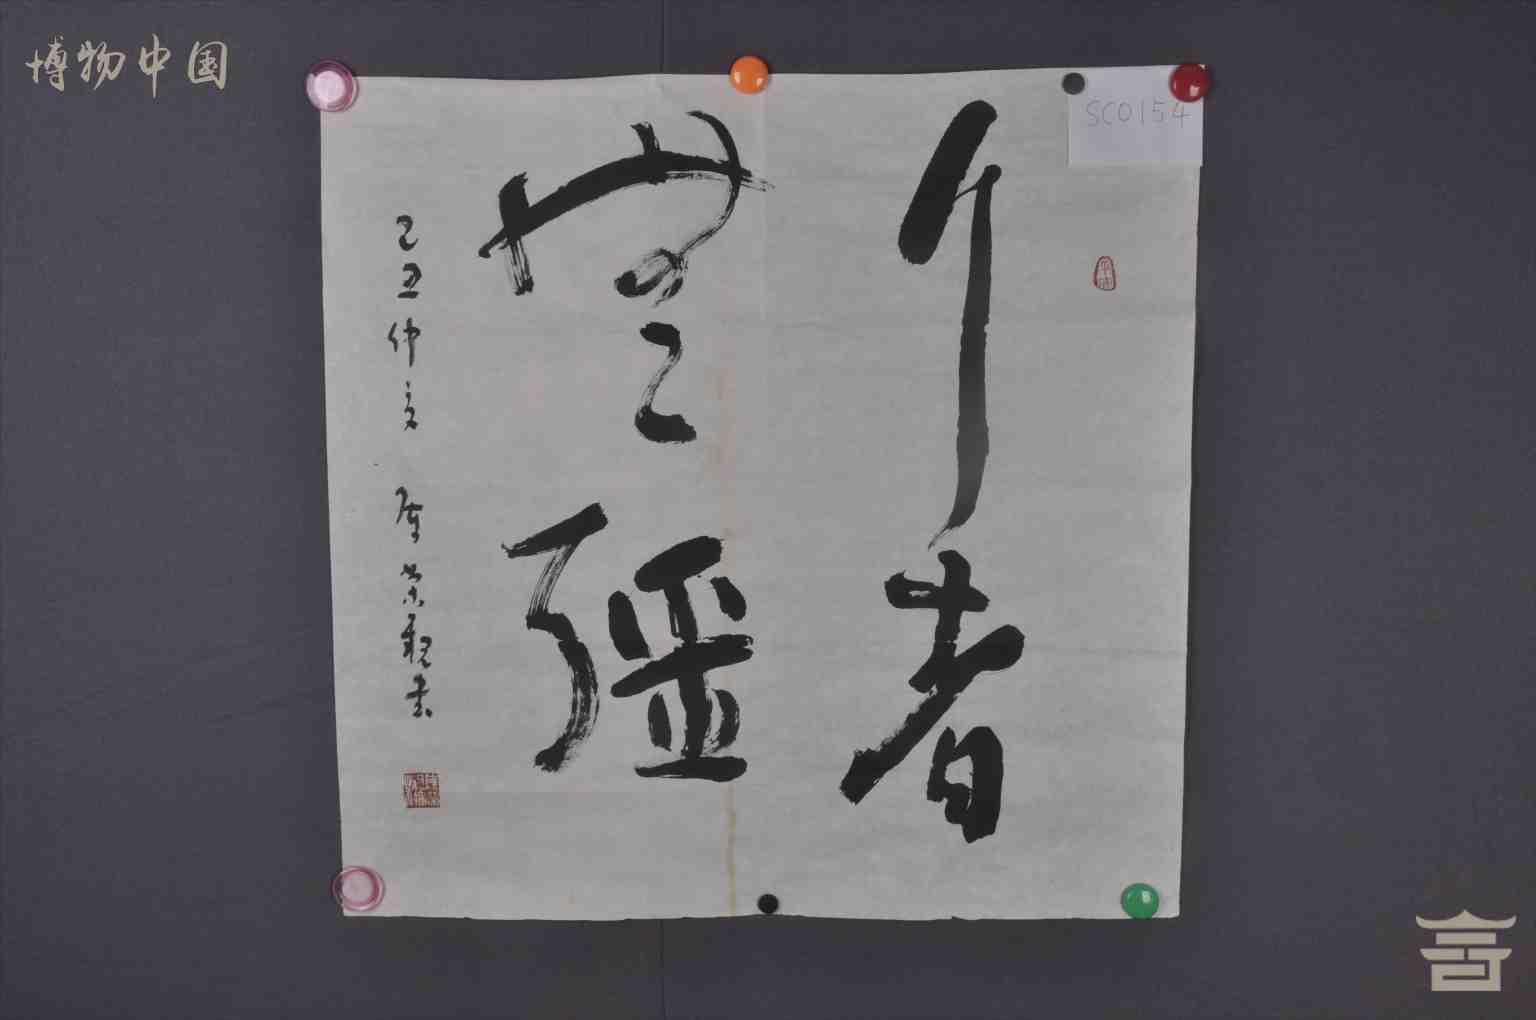 博物中国
SC0154
行者
無疆
己丑仲夏 荣 书